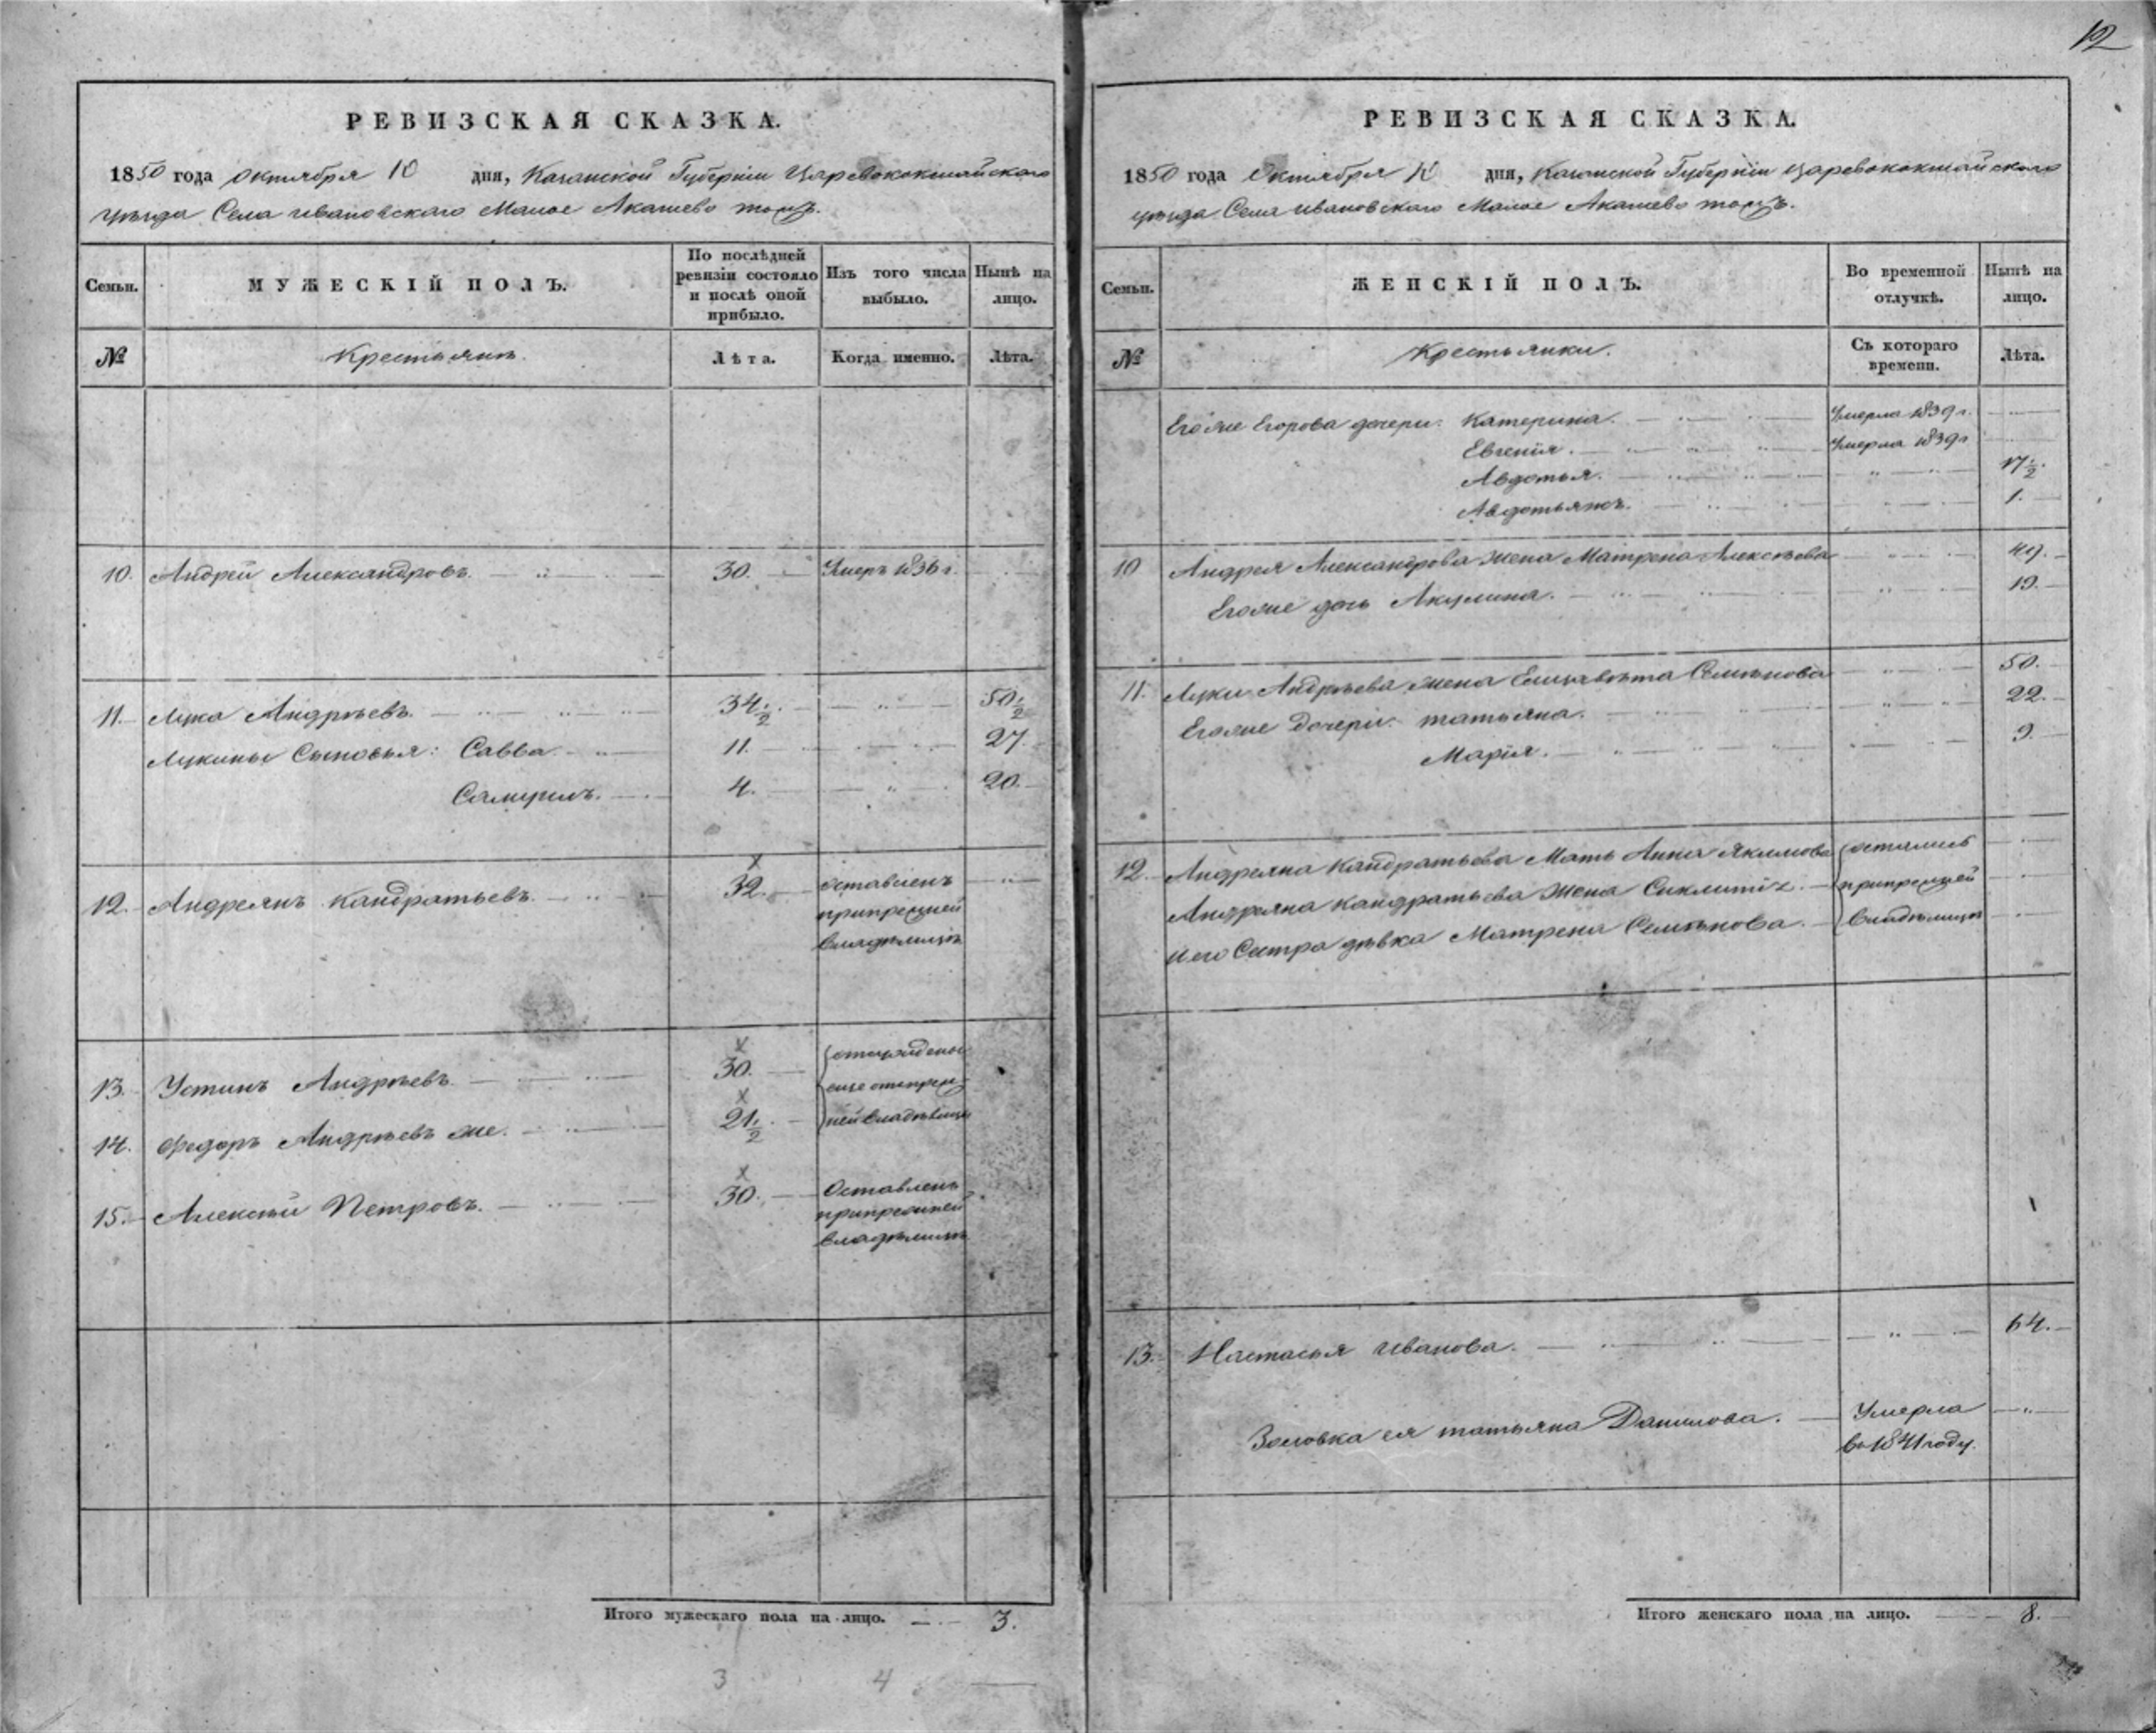 12
РЕВИЗСКАЯ СКАЗКА.
1850 года Октября 10 дня, Казанской Губерніи Царевококшайскаго
уѣзда Села Ивановскаго Малое Акашево тожъ.
Семьи. МУЖЕСКІЙ ПОЛЪ. По послѣдней ревизіи состояло и послѣ оной прибыло. Изъ того числа выбыло. Нынѣ на лицо.
№ Крестьянъ. Лѣта. Когда именно. Лѣта.
10. Андрей Александровъ. 30. Умеръ 1836 г.
11. Лука Андрѣевъ. 34 1/2. 50 1/2
Лукины Сыновья: Савва 11. 27.
Самуилъ. 4. 20.
12. Андреянъ Кандратьевъ. 32. оставленъ
припрежней
владѣлицѣ
13. Устинъ Андрѣевъ 30.
14. Федоръ Андрѣевъ же. 21 1/2. ней владѣлицы
15. Алексѣй Петровъ. 30. Оставленъ
припрежней
владѣлицѣ
Итого мужескаго пола на лицо. 3.
3 4
РЕВИЗСКАЯ СКАЗКА.
1850 года Октября 10 дня, Казанской Губерніи Царевококшайскаго
уѣзда Села Ивановскаго Малое Акашево тожъ.
Семьи. ЖЕНСКІЙ ПОЛЪ. Во временной отлучкѣ. Нынѣ на лицо.
№ Крестьянки. Съ котораго времени. Лѣта.
Егоже Егорова дочери: Катерина. Умерла 1839 г.
Евгенія. Умерла 1839 г
Авдотья. 17 1/2.
Авдотьяжъ. 1.
10 Андрея Александрова жена Матрена Алексѣева 49.
Егоже дочь Акулина. 19.
11. Луки Андрѣева жена Елизавѣта Семѣнова 50.
Егоже Дочери: татьяна. 22.
Марія. 9.
12. Андреяна Кандратьева Мать Анна Якимова остались
Андреяна Кандратьева жена припрежней
Иего Сестра дѣвка Матрена Семѣнова. владѣлицѣ
13. Настасья Иванова. 64.
Золовка ея татьяна Данилова. Умерла
Въ 1841 году.
Итого женскаго пола на лицо. 8.